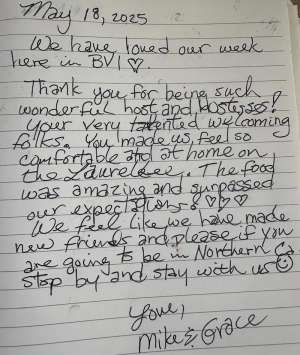 May 18, 2025
We have loved our week
here in BVI ♡.
Thank you for being such
wonderful host and hostesses!
Your very talented welcoming
folks. You made us feel so
comfortable and at home on
the Laurelee. The food
was amazing and surpassed
our expectations! ♡♡♡
We feel like we have made
new friends and please if you
are going to be in Northern Ca
stop by and stay with us ☺
Love,
Mike & Grace